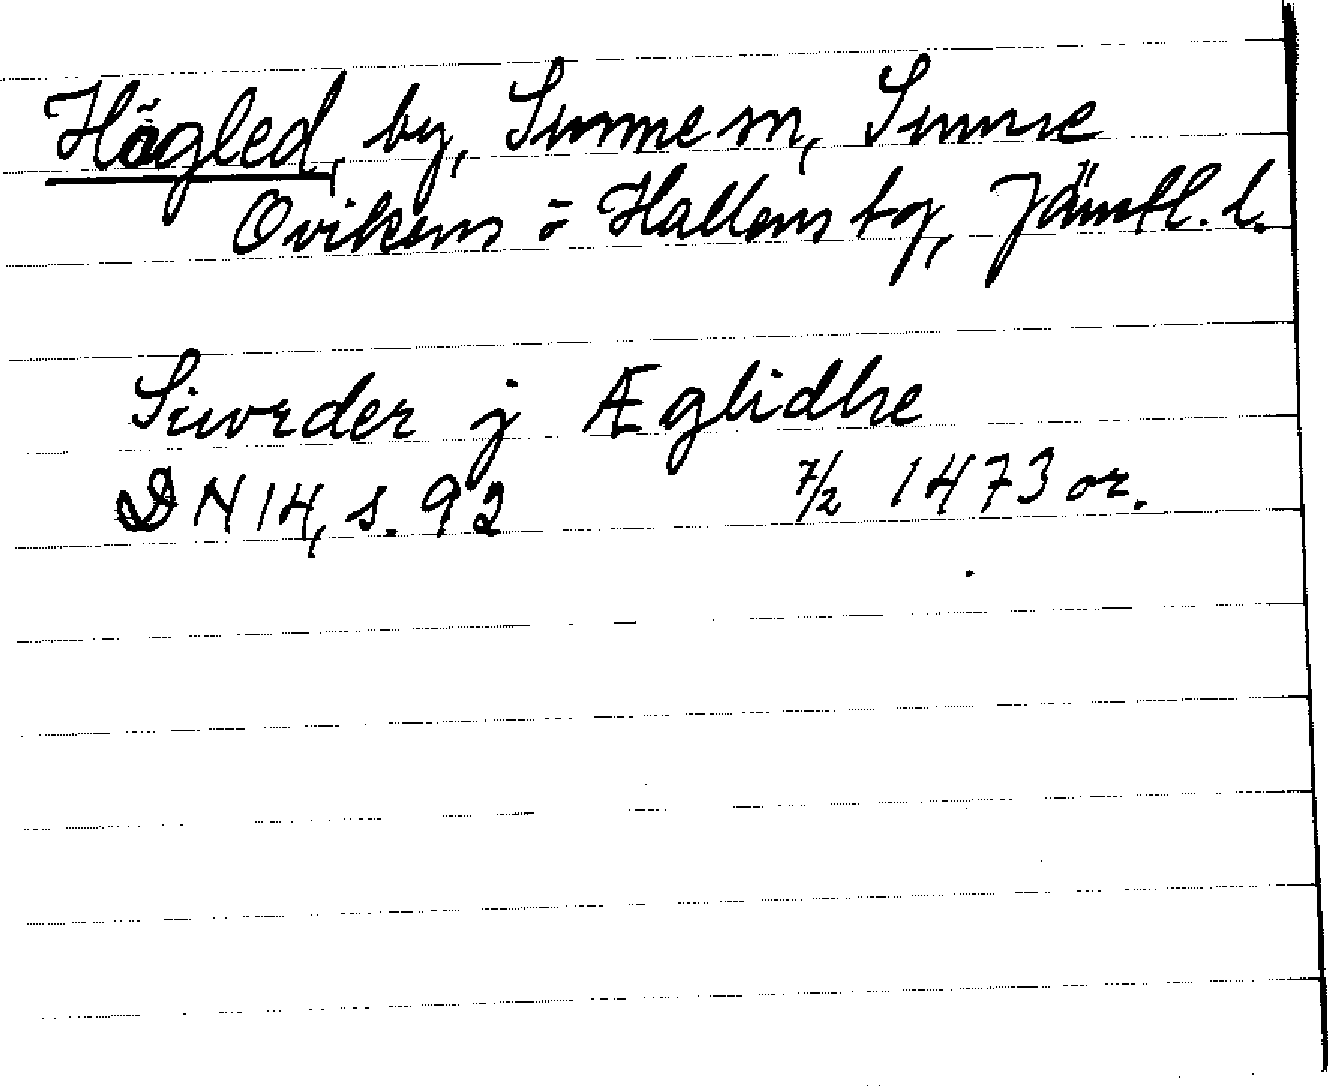 Hägled, by, Sunne sn, Sunne
Ovikens o Hallens tg, Jämtl. l.
Siwrder j Æglidhe
DN 14, s. 92 7/2 1473 or.